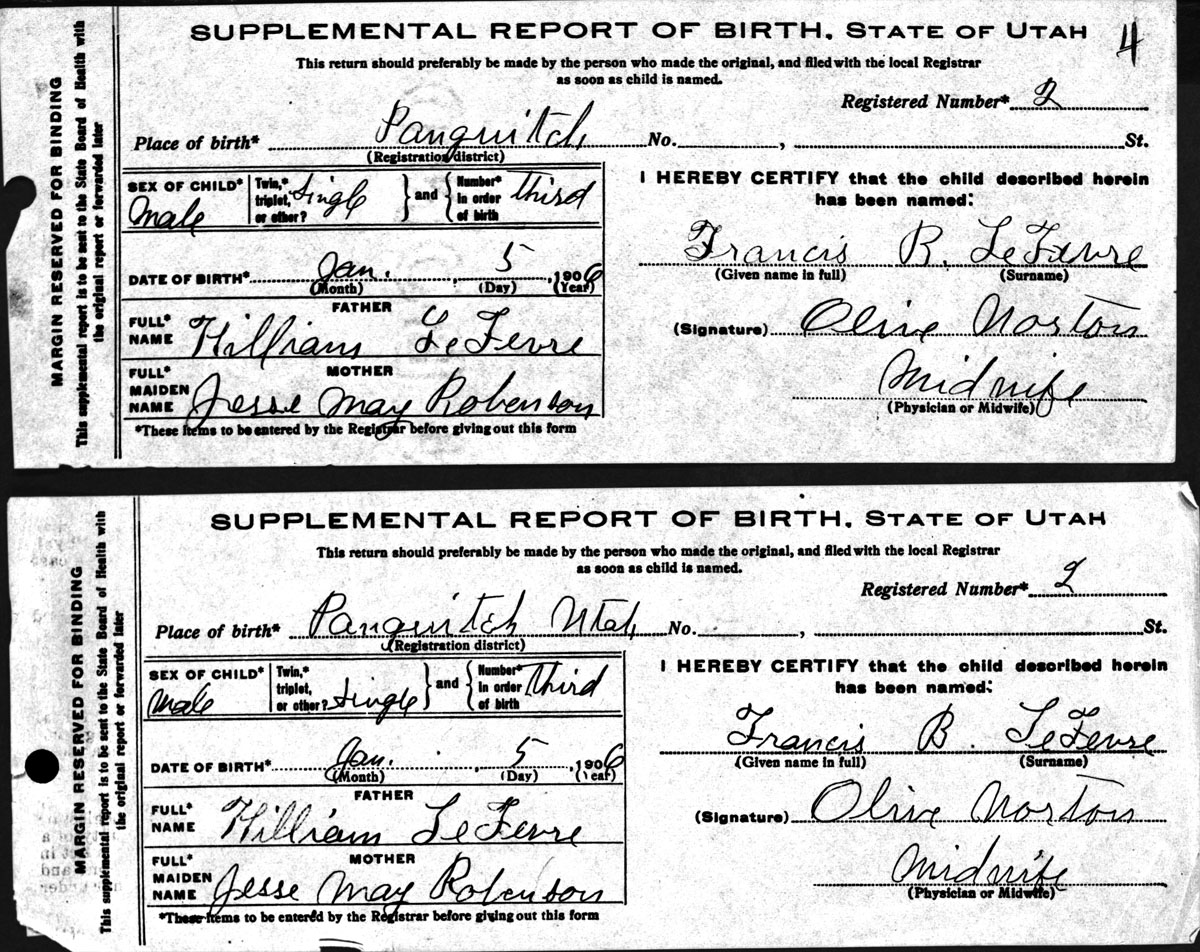 SUPPLEMENTAL REPORT OF BIRTH, STATE OF UTAH
4
This return should preferably be made by the person who made the original, and filed with the local Registrar
as soon as child is named.
Registered Number* 2
Place of birth* Panguitch No. , St.
(Registration district)
SEX OF CHILD* Male
Twin,* triplet, or other? Single } and { Number* in order of birth third
DATE OF BIRTH* Jan. , 5 , 1906
(Month) (Day) (Year)
FATHER
FULL* NAME William LeFevre
MOTHER
FULL* MAIDEN NAME Jesse May Robenson
*These items to be entered by the Registrar before giving out this form
I HEREBY CERTIFY that the child described herein
has been named:
Francis B. LeFevre
(Given name in full) (Surname)
(Signature) Olive Norton
Midwife
(Physician or Midwife)
MARGIN RESERVED FOR BINDING
This supplemental report is to be sent to the State Board of Health with
the original report or forwarded later
SUPPLEMENTAL REPORT OF BIRTH, STATE OF UTAH
This return should preferably be made by the person who made the original, and filed with the local Registrar
as soon as child is named.
Registered Number* 2
Place of birth* Panguitch Utah No. , St.
(Registration district)
SEX OF CHILD* Male
Twin,* triplet, or other? Single } and { Number* in order of birth third
DATE OF BIRTH* Jan. , 5 , 1906
(Month) (Day) (Year)
FATHER
FULL* NAME William LeFevre
MOTHER
FULL* MAIDEN NAME Jesse May Robenson
*These items to be entered by the Registrar before giving out this form
I HEREBY CERTIFY that the child described herein
has been named:
Francis B. LeFevre
(Given name in full) (Surname)
(Signature) Olive Norton
Midwife
(Physician or Midwife)
MARGIN RESERVED FOR BINDING
This supplemental report is to be sent to the State Board of Health with
the original report or forwarded later